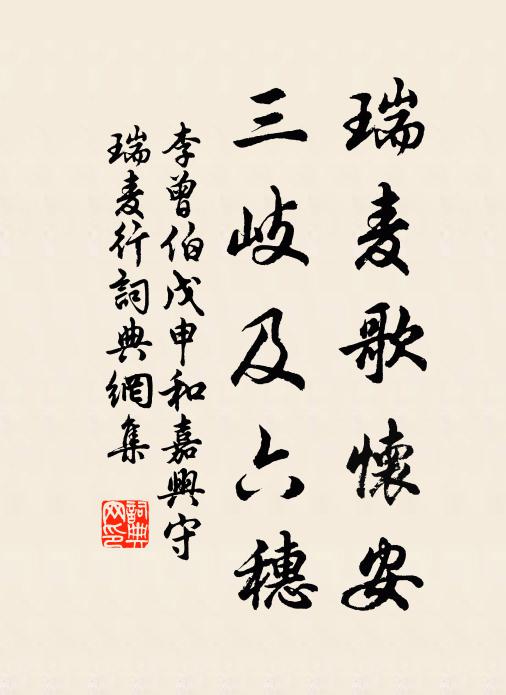 瑞麦歌懷安
三岐及六穗
李曾伯戊申和嘉興守
瑞麦行詞典網集
詞典网印